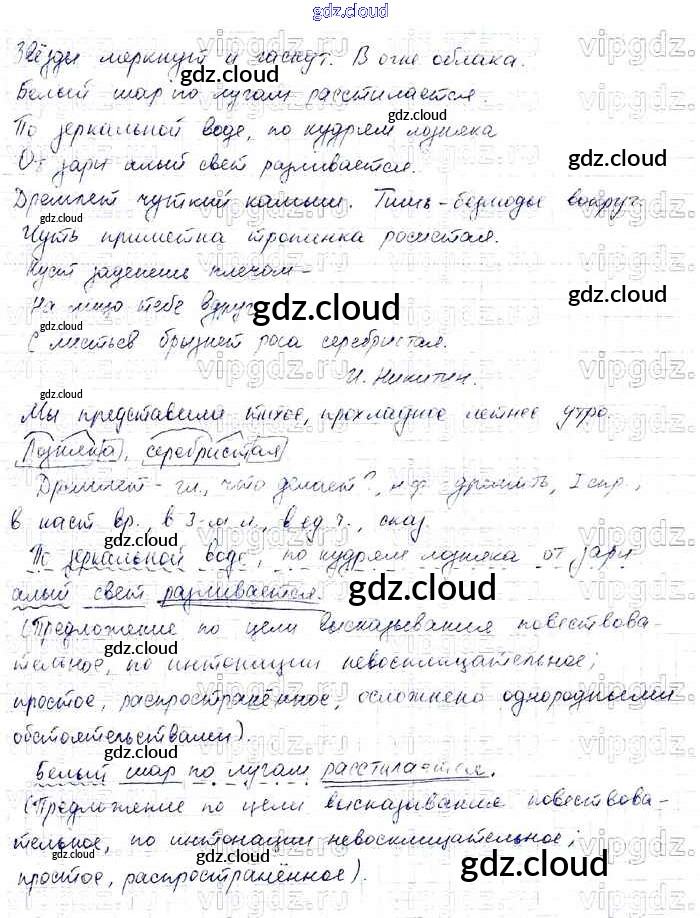 gdz.cloud
Звёзды меркнут и гаснут. В огне облака.
Белый пар по лугам расстилается.
По зеркальной воде, по кудрям лозняка
От зари алый свет разливается.
Дремлет чуткий камыш. Тишь-безлюдье вокруг.
Чуть приметна тропинка росистая.
Куст заденешь плечом –
На лицо тебе вдруг
С листьев брызнет роса серебристая.
И. Никитин.
Мы представили тихое, прохладное летнее утро.
Лозняк(а), серебрист(ая)
Дремлет – гл., что делает?, н.ф. – дремать, I спр.,
в наст вр., в 3-м л., в ед ч., сказ.
По зеркальной воде, по кудрям лозняка от зари
алый свет разливается.
(Предложение по цели высказывания повествова-
тельное, по интонации невосклицательное;
простое, распространённое, осложнено однородными
обстоятельствами).
Белый пар по лугам расстилается.
(Предложение по цели высказывание повествова-
тельное, по интонации невосклицательное;
простое, распространённое).